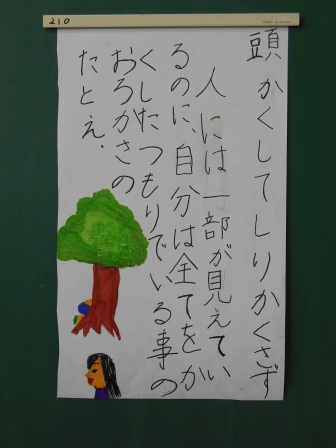 210
頭かくしてしりかくさず
人には一部が見えてい
るのに、自分は全てをか
くしたつもりでいる事の
おろかさの
たとえ.